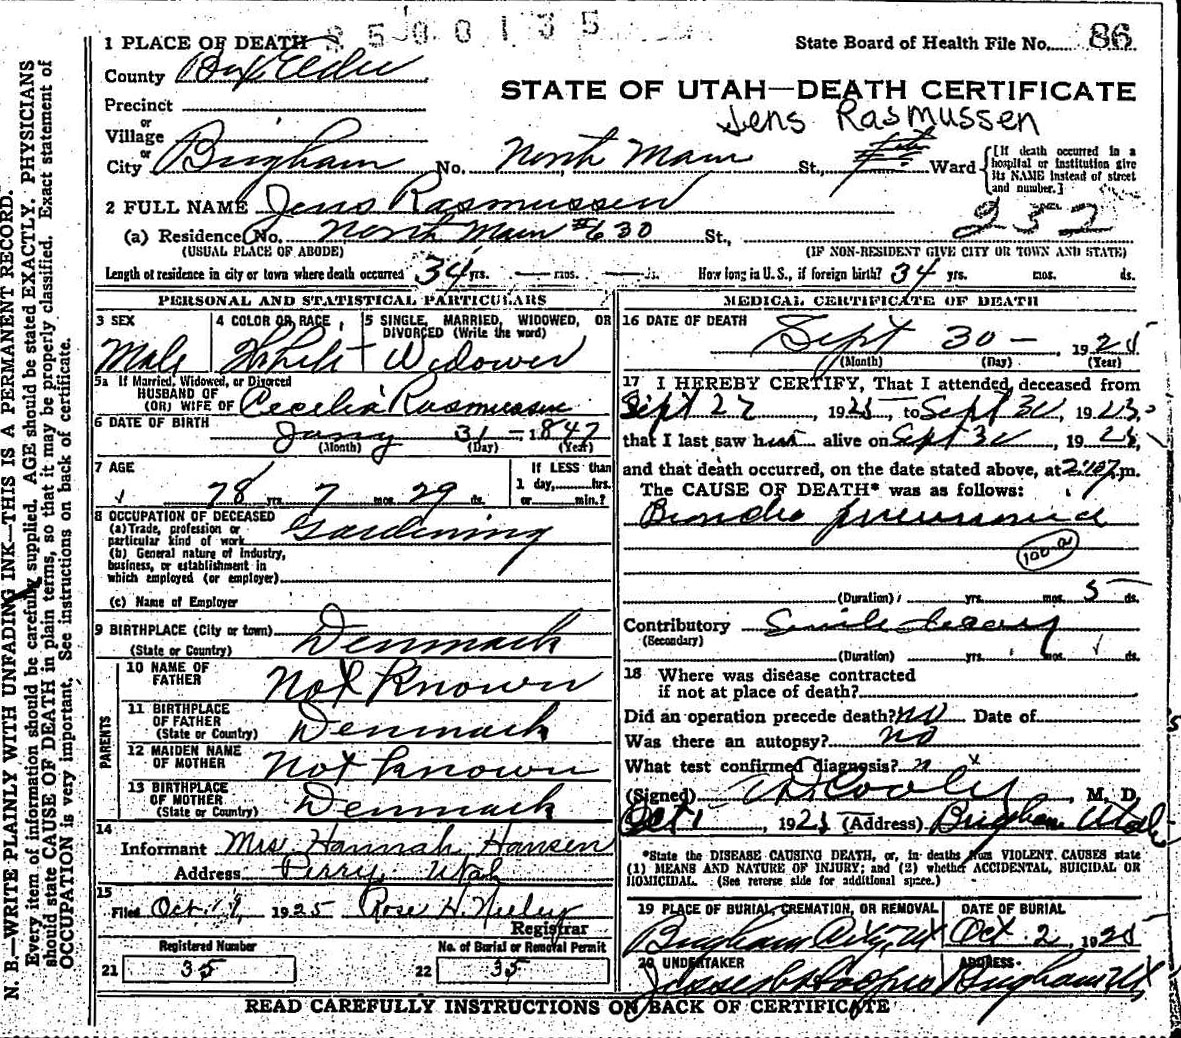 8500135
1 PLACE OF DEATH
State Board of Health File No. 86
County Box Elder
STATE OF UTAH—DEATH CERTIFICATE
Precinct
or
Jens Rasmussen
Village
or
City Brigham No. North Main St., Ward
[If death occurred in a hospital or institution give its NAME instead of street and number.]
2 FULL NAME Jens Rasmussen
252
(a) Residence No. North Main #630 St.,
(USUAL PLACE OF ABODE) (IF NON-RESIDENT GIVE CITY OR TOWN AND STATE)
Length of residence in city or town where death occurred 34 yrs. — mos. — ds. How long in U.S., if foreign birth? 34 yrs. mos. ds.
PERSONAL AND STATISTICAL PARTICULARS
3 SEX
Male
4 COLOR OR RACE
White
5 SINGLE, MARRIED, WIDOWED, OR
DIVORCED (Write the word)
Widower
5a If Married, Widowed, or Divorced
HUSBAND OF
(OR) WIFE OF Cecelia Rasmussen
6 DATE OF BIRTH
Jany 31 - 1847
(Month) (Day) (Year)
7 AGE
78 yrs. 7 mos. 29 ds.
If LESS than
1 day,....hrs.
or ....min.?
8 OCCUPATION OF DECEASED
(a) Trade, profession or
particular kind of work Gardening
(b) General nature of Industry,
business, or establishment in
which employed (or employer)
(c) Name of Employer
9 BIRTHPLACE (City or town)
(State or Country) Denmark
PARENTS
10 NAME OF
FATHER Not Known
11 BIRTHPLACE
OF FATHER
(State or Country) Denmark
12 MAIDEN NAME
OF MOTHER Not Known
13 BIRTHPLACE
OF MOTHER
(State or Country) Denmark
14
Informant Mrs Hannah Hansen
Address Perry, Utah
15
Filed Oct 1925 Rose H. Neeley
Registrar
Registered Number
21 35
No. of Burial or Removal Permit
22 35
MEDICAL CERTIFICATE OF DEATH
16 DATE OF DEATH
Sept 30 - 1925
(Month) (Day) (Year)
17 I HEREBY CERTIFY, That I attended deceased from
Sept 27, 1925, to Sept 30, 1925.
that I last saw him alive on Sept 30, 1925,
and that death occurred, on the date stated above, at m.
The CAUSE OF DEATH* was as follows:
Broncho pneumonia
100-a
(Duration) yrs. mos. 5 ds.
Contributory Senile decay
(Secondary)
(Duration) yrs. mos. ds.
18 Where was disease contracted
if not at place of death?
Did an operation precede death? no Date of
Was there an autopsy? no
What test confirmed diagnosis?
(Signed) Cooley, M. D.
Oct 1, 1925 (Address) Brigham Utah
*State the DISEASE CAUSING DEATH, or, in deaths from VIOLENT CAUSES state
(1) MEANS AND NATURE OF INJURY; and (2) whether ACCIDENTAL, SUICIDAL OR
HOMICIDAL. (See reverse side for additional space.)
19 PLACE OF BURIAL, CREMATION, OR REMOVAL
Brigham City, Ut
DATE OF BURIAL
Oct. 2, 1925
20 UNDERTAKER
ADDRESS
Brigham Ut
READ CAREFULLY INSTRUCTIONS ON BACK OF CERTIFICATE
N. B.—WRITE PLAINLY WITH UNFADING INK—THIS IS A PERMANENT RECORD.
Every item of information should be carefully supplied. AGE should be stated EXACTLY. PHYSICIANS
should state CAUSE OF DEATH in plain terms, so that it may be properly classified. Exact statement of
OCCUPATION is very important. See instructions on back of certificate.